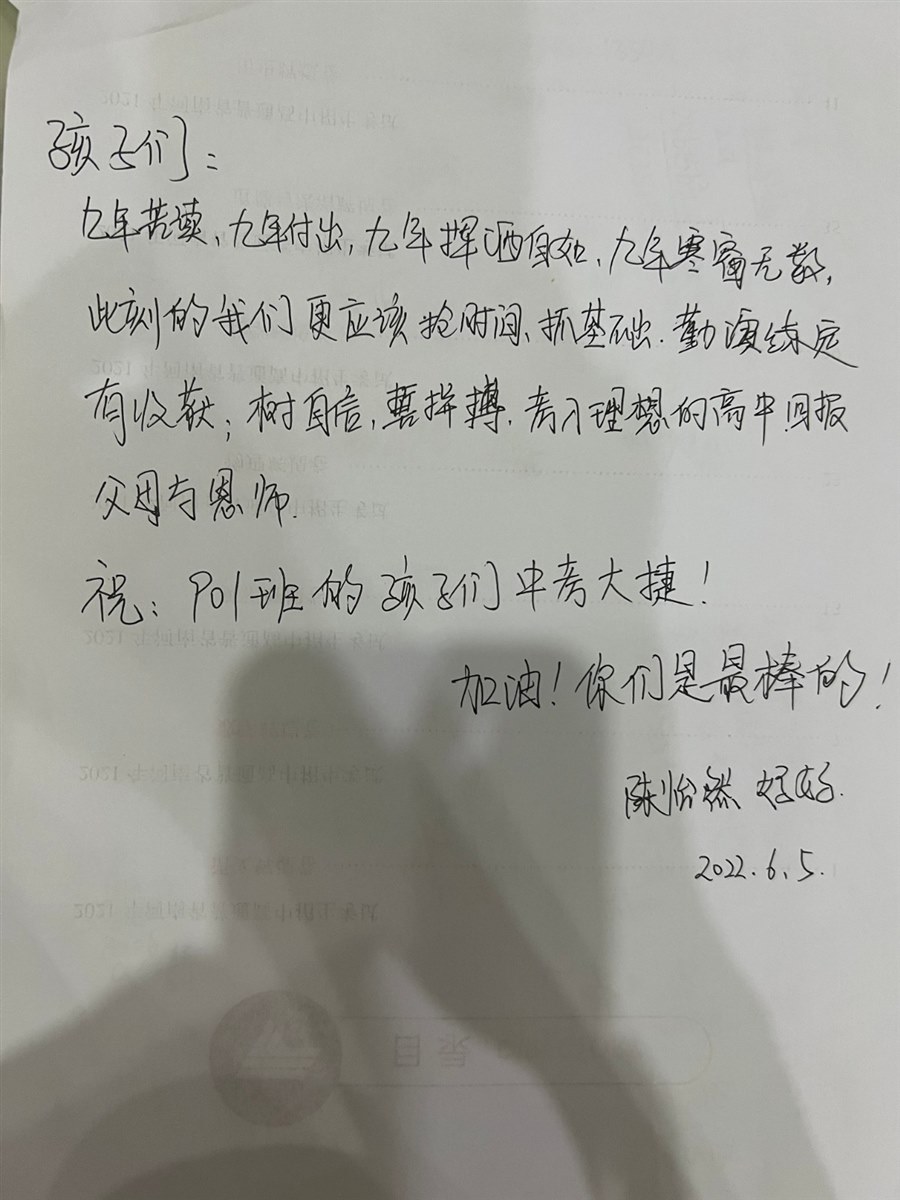 孩子们：
九年苦读、九年付出，九年挥洒自如、九年寒窗无数，
此刻的我们更应该抢时间、抓基础．勤演练定
有收获；树自信，誓拼搏．考入理想的高中．回报
父母与恩师．
祝：901班的孩子们中考大捷！
加油！你们是最棒的！
陈怡然 妈妈．
2022.6.5.
目录